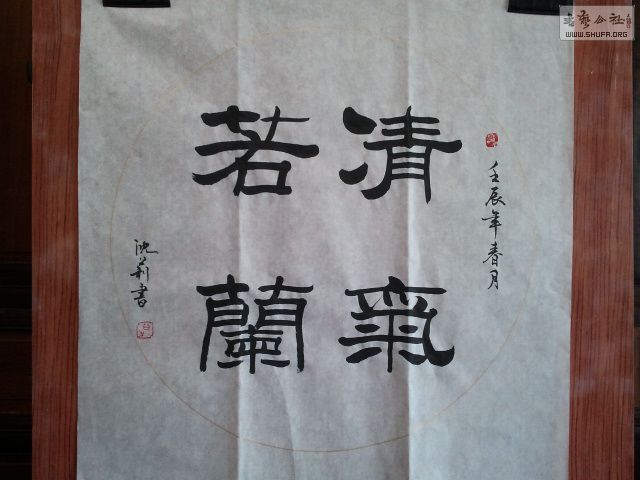 壬辰年春月
清氣
若蘭
沈莉書
書藝公社
WWW.SHUFA.ORG